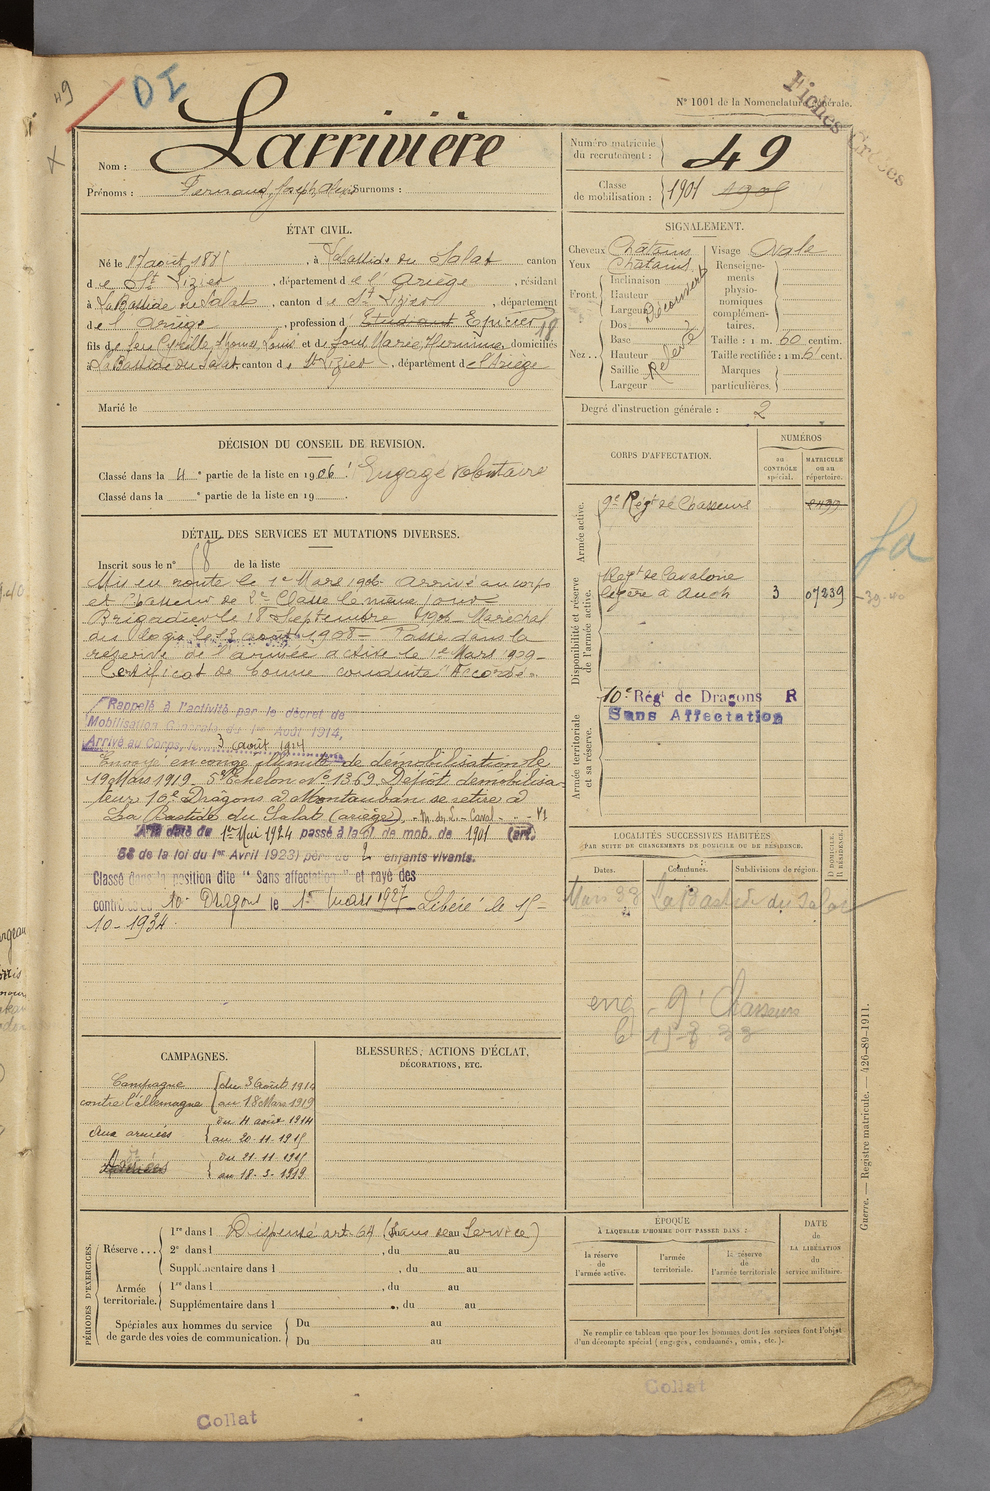 49
DI
Fiches Créées
N° 1001 de la Nomenclature générale.
Nom : Larrivière
Prénoms : Fernand, Joseph, Surnoms :
Numéro matricule du recrutement : 49
Classe de mobilisation : 1901 1905
ÉTAT CIVIL.
Né le 17 août 188 , à Labastide du Salat canton
de St Lizier , département de l'Ariège , résidant
à La Bastide du Salat , canton de St Lizier , département
de l'Ariège , profession d' Etudiant Epicier 18
fils de feu Cyrille, Louis et de Marie, domiciliés
à La Bastide du Salat, canton de St Lizier , département de l'Ariège
Marié le
SIGNALEMENT.
Cheveux Châtains Visage Ovale
Yeux Châtains Renseignements physionomiques complémentaires.
Front. Inclinaison Hauteur Largeur Découvert
Nez.. Dos Base Hauteur Saillie Largeur Relevé
Taille : 1 m. 60 centim.
Taille rectifiée : 1 m. 6 cent.
Marques particulières.
Degré d'instruction générale : 2
DÉCISION DU CONSEIL DE REVISION.
Classé dans la 4 e partie de la liste en 1906 ! Engagé volontaire
Classé dans la e partie de la liste en 19
CORPS D'AFFECTATION.
NUMÉROS
au CONTRÔLE spécial.
MATRICULE ou au répertoire.
Armée active.
9e Régt de Chasseurs
Disponibilité et réserve de l'armée active.
Régt de Cavalerie
légère à Auch 3 07239
39-40
Armée territoriale et sa réserve.
10e Rég' de Dragons R
Sans Affectation
DÉTAIL DES SERVICES ET MUTATIONS DIVERSES.
Inscrit sous le n° 68 de la liste
Mis en route le 1er Mars 1906 arrivé au corps
et Chasseur de 2e Classe le même jour
Brigadier le 18 Septembre 1906 Maréchal
des Logis le 13 août 1908 - Passé dans la
réserve de l'armée active le 1er Mars 1909 -
Certificat de bonne conduite "Accordé"
Rappelé à l'activité par le décret de
Mobilisation Générale du 1er Août 1914,
Arrivé au Corps, le 3 août 1914
Envoyé en congé illimité de démobilisation le
19 Mars 1919 5e Echelon No 1369 Dépôt démobilisa-
teur 10e Dragons à Montauban se retire à
La Bastide du Salat (ariège).
A la date du 1er Mai 1924 passé à la cl de mob. de 1901 (art.
58 de la loi du 1er Avril 1923) père de 2 enfants vivants.
Classé dans la position dite "Sans affectation" et rayé des
contrôles du 10e Dragons le 1er mars 1927 Libéré le 15-
10-1934
LOCALITÉS SUCCESSIVES HABITÉES
PAR SUITE DE CHANGEMENTS DE DOMICILE OU DE RÉSIDENCE.
Dates. Communes. Subdivisions de région. D DOMICILE. R RÉSIDENCE.
Mars 33 La Bastide du Salat
eng 9e Chasseurs
CAMPAGNES.
Campagne contre l'allemagne du 3 août 1914 au 18 Mars 1919
Aux armées du 4 août 1914 au 20-11-1915
du 21-11-1915 au 18-3-1919
BLESSURES, ACTIONS D'ÉCLAT,
DÉCORATIONS, ETC.
PÉRIODES D'EXERCICES.
Réserve... 1re dans l Dispensé art. 64
2e dans l , du au
Supplémentaire dans l , du au
Armée territoriale. 1re dans l , du au
Supplémentaire dans l , du au
Spéciales aux hommes du service de garde des voies de communication. Du au
Du au
ÉPOQUE
À LAQUELLE L'HOMME DOIT PASSER DANS :
la réserve de l'armée active.
l'armée territoriale.
la réserve de l'armée territoriale
DATE de LA LIBÉRATION du service militaire.
Ne remplir ce tableau que pour les hommes dont les services font l'objet
d'un décompte spécial (engagés, condamnés, omis, etc.).
Guerre. — Registre matricule. — 426-89-1911.
Collat
Collat